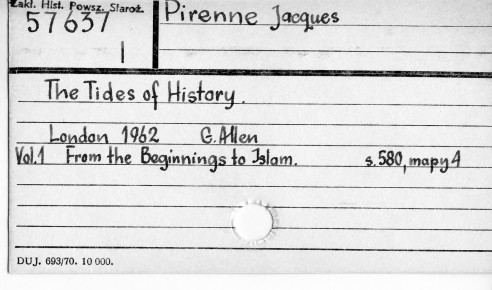 Zakł. Hist. Powsz. Staroż.
57637
1
Pirenne Jacques
The Tides of History.
London 1962 G. Allen
Vol.1 From the Beginnings to Islam. s.580, mapy 4
DUJ. 693/70. 10 000.